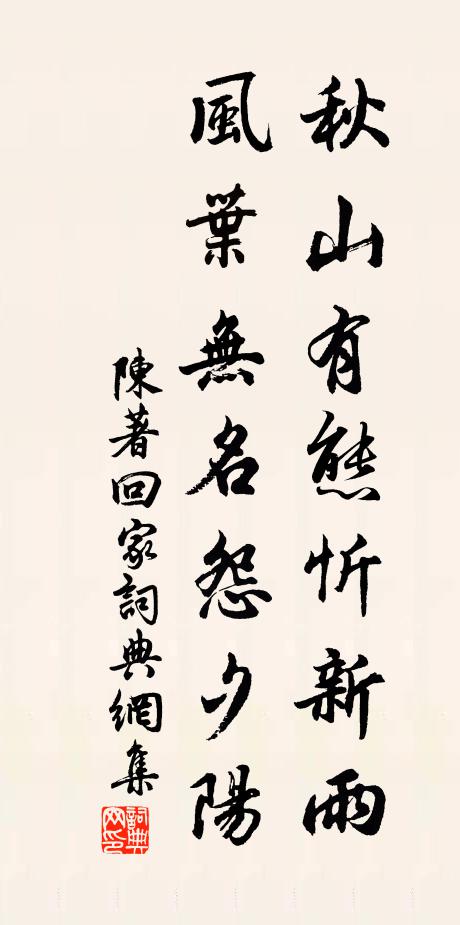 秋山有態忻新雨
風葉無名怨夕陽
陳著回家詞典網集
詞典网印